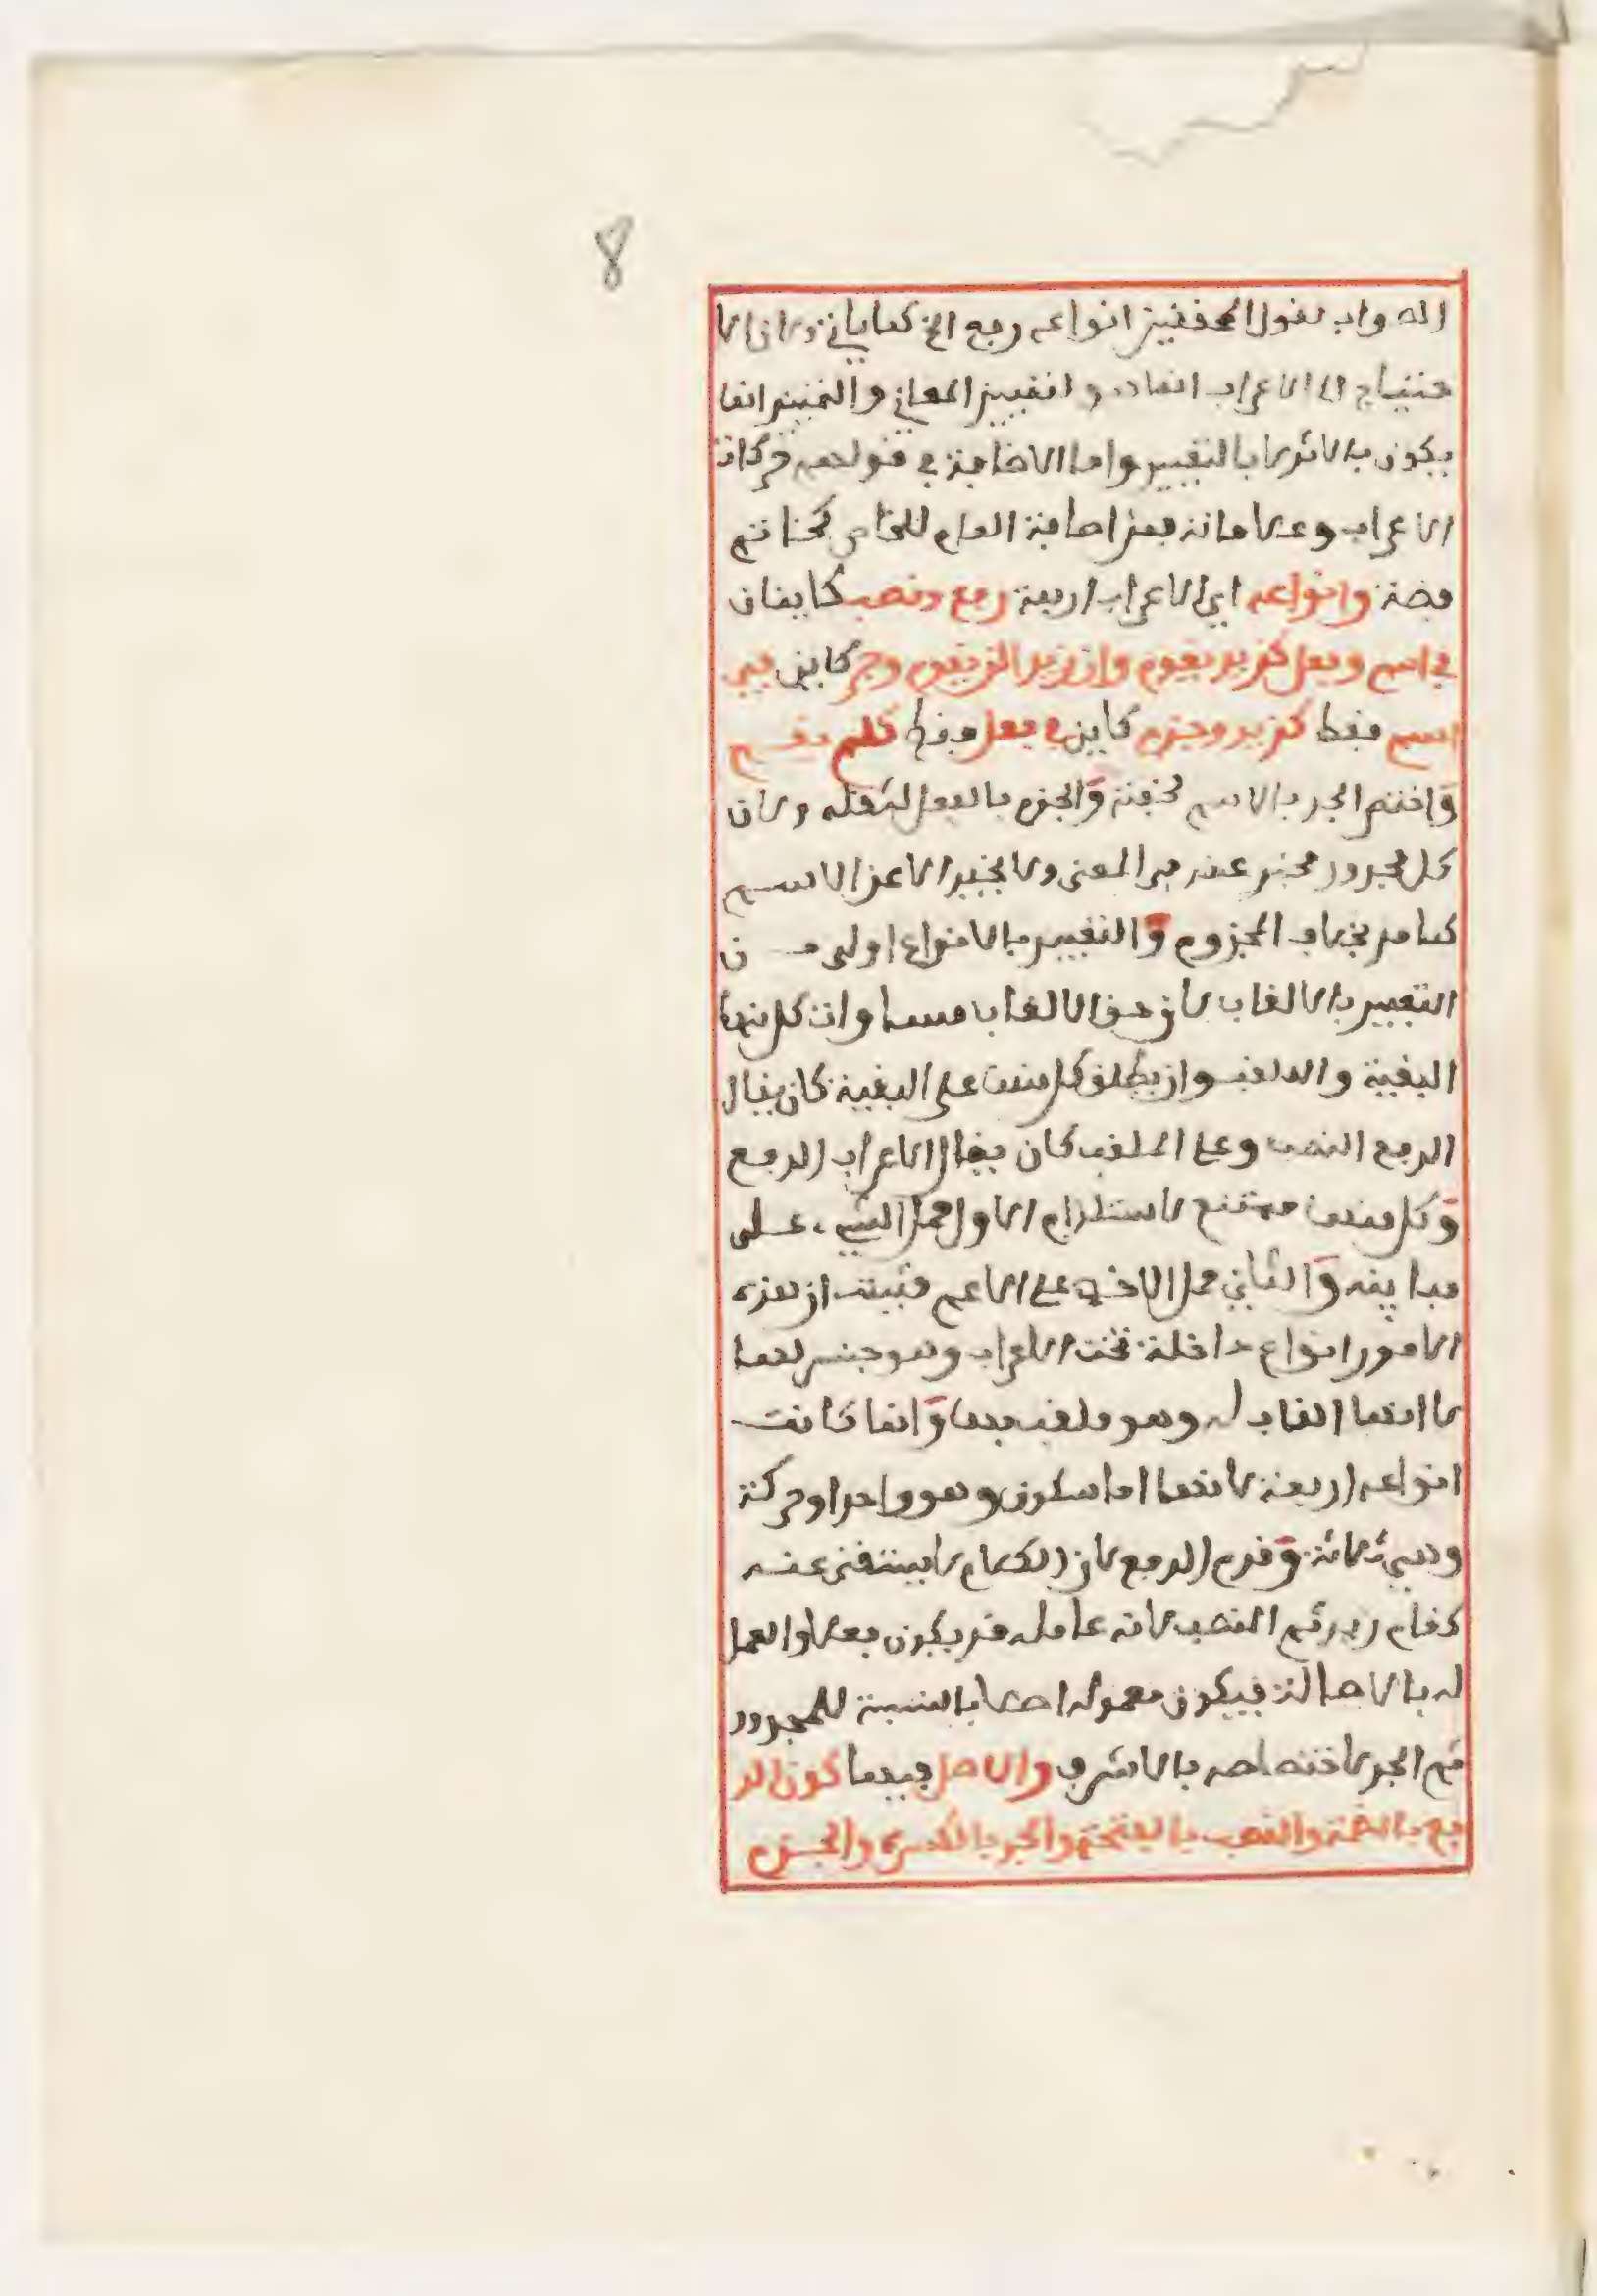 8
الله واب بقول المحققين انواعه رفع الخ كما ياتي ولان الا
حتياج الى الاعراب انما هو لتمييز المعاني والتمييز انما
يكون بالاثر لا بالتغيير واما الاضافة في قولهم حركات
الاعراب وعلاماته فمن اضافة العام للخاص كخاتم
فضة وانواعه اي الاعراب اربعة رفع ونصب كاينان
في اسم وفعل كزيد يقوم وان زيدا لن يقوم وجر كاين في
اسم فقط كزيد وجزم كاين في فعل فقط كلم يقم
واختص الجر بالاسم لخفته والجزم بالفعل لثقله ولان
كل مجرور مخبر عنه في المعنى ولا يخبر الا عن الاسم
كما مر بخلاف المجزوم والتعبير بالانواع اولى من
التعبير بالالقاب لان حق الالقاب مساواة كل منها
البقية والملقب وان يطلق كل منها على البقية كان يقال
الرفع النصب وعلى الملقب كان يقال الاعراب الرفع
وكل منهما ممتنع لاستلزام الاول حمل الشيء على
مباينه والثاني حمل الاخص على الاعم فثبت ان هذه
الامور انواع داخلة تحت الاعراب وهو جنس لها
لا انها القاب له وهو ملقب بها وانما كانت
انواعه اربعة لانها اما سكون وهو واحد او حركة
وهي ثلاثة وقدم الرفع لان الكلام لا يستغني عنه
كقام زيد ثم النصب لان عامله قد يكون فعلا والعمل
له بالاصالة فيكون معموله اصلا بالنسبة للمجرور
ثم الجر لاختصاصه بالاشرف والاصل فيها كون الر
فع بالضمة والنصب بالفتحة والجر بالكسرة والجزم